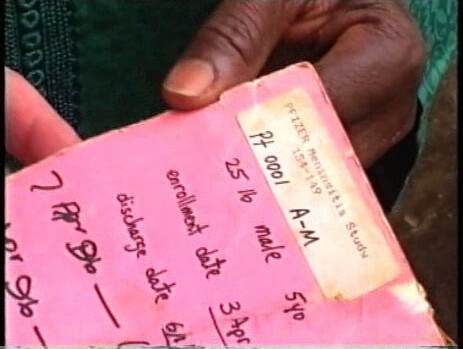 PFIZER Meningitis Study
154-149
Pt 0001 A-M
25 lb male 5yo
enrollment date 3 Apr
discharge date 6/1
7 Apr 96 —
Apr 96 —